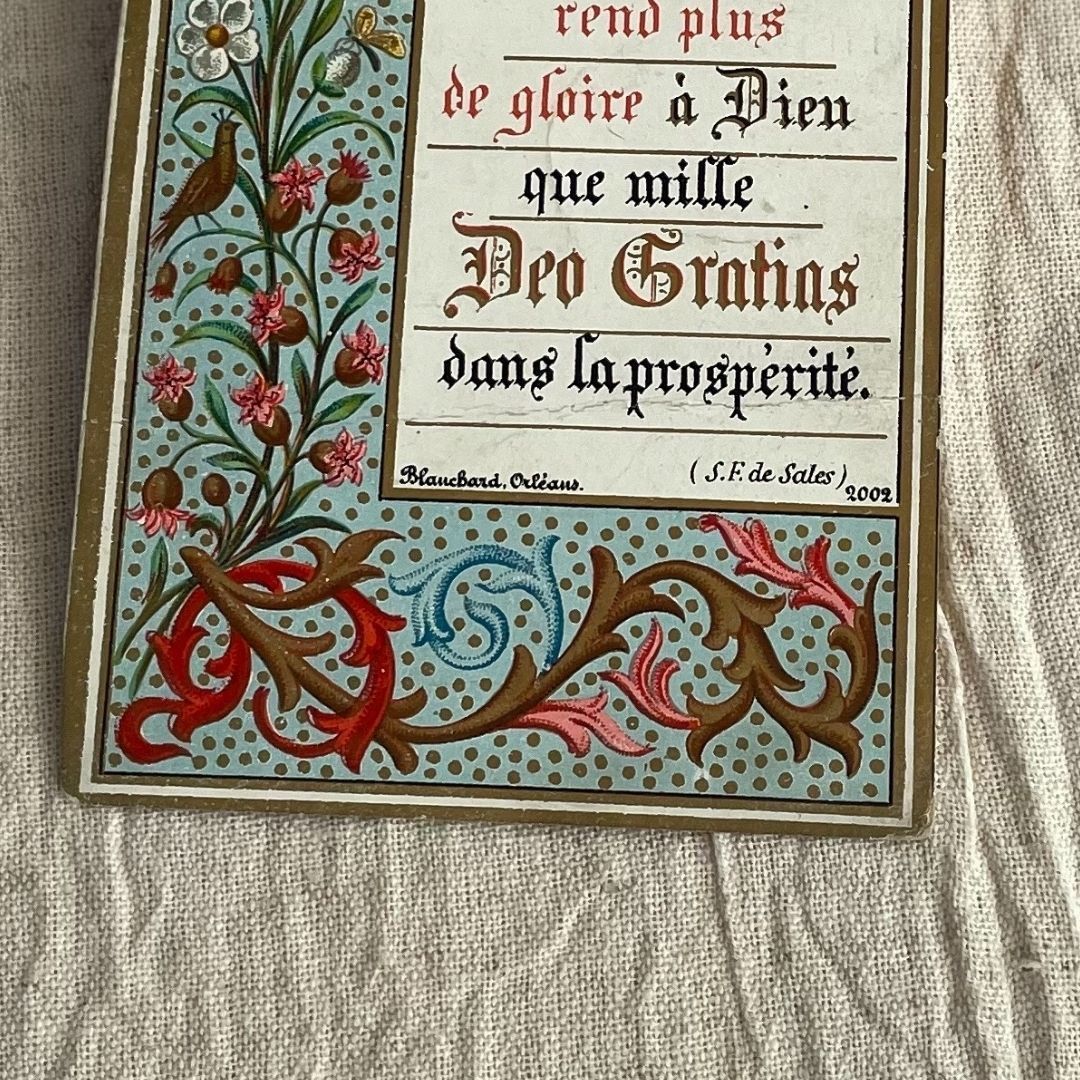 rend plus
de gloire à Dieu
que mille
Deo Gratias
dans la prospérité.
(S.F. de Sales)
Blanchard, Orléans.
2002